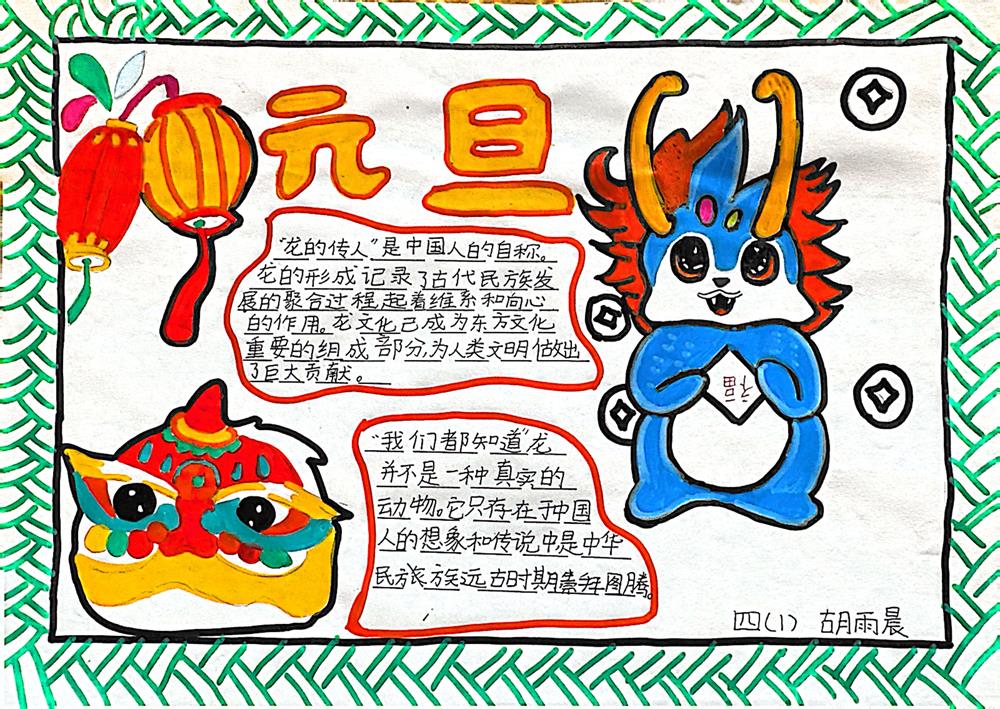 元旦
“龙的传人”是中国人的自称。
龙的形成记录了古代民族发
展的聚合过程,起着维系和向心
的作用。龙文化已成为东方文化
重要的组成部分,为人类文明做出
了巨大贡献。
福
“我们都知道”龙
并不是一种真实的
动物。它只存在于中国
人的想象和传说中是中华
民族族远古时期崇拜图腾。
四(1) 胡雨晨